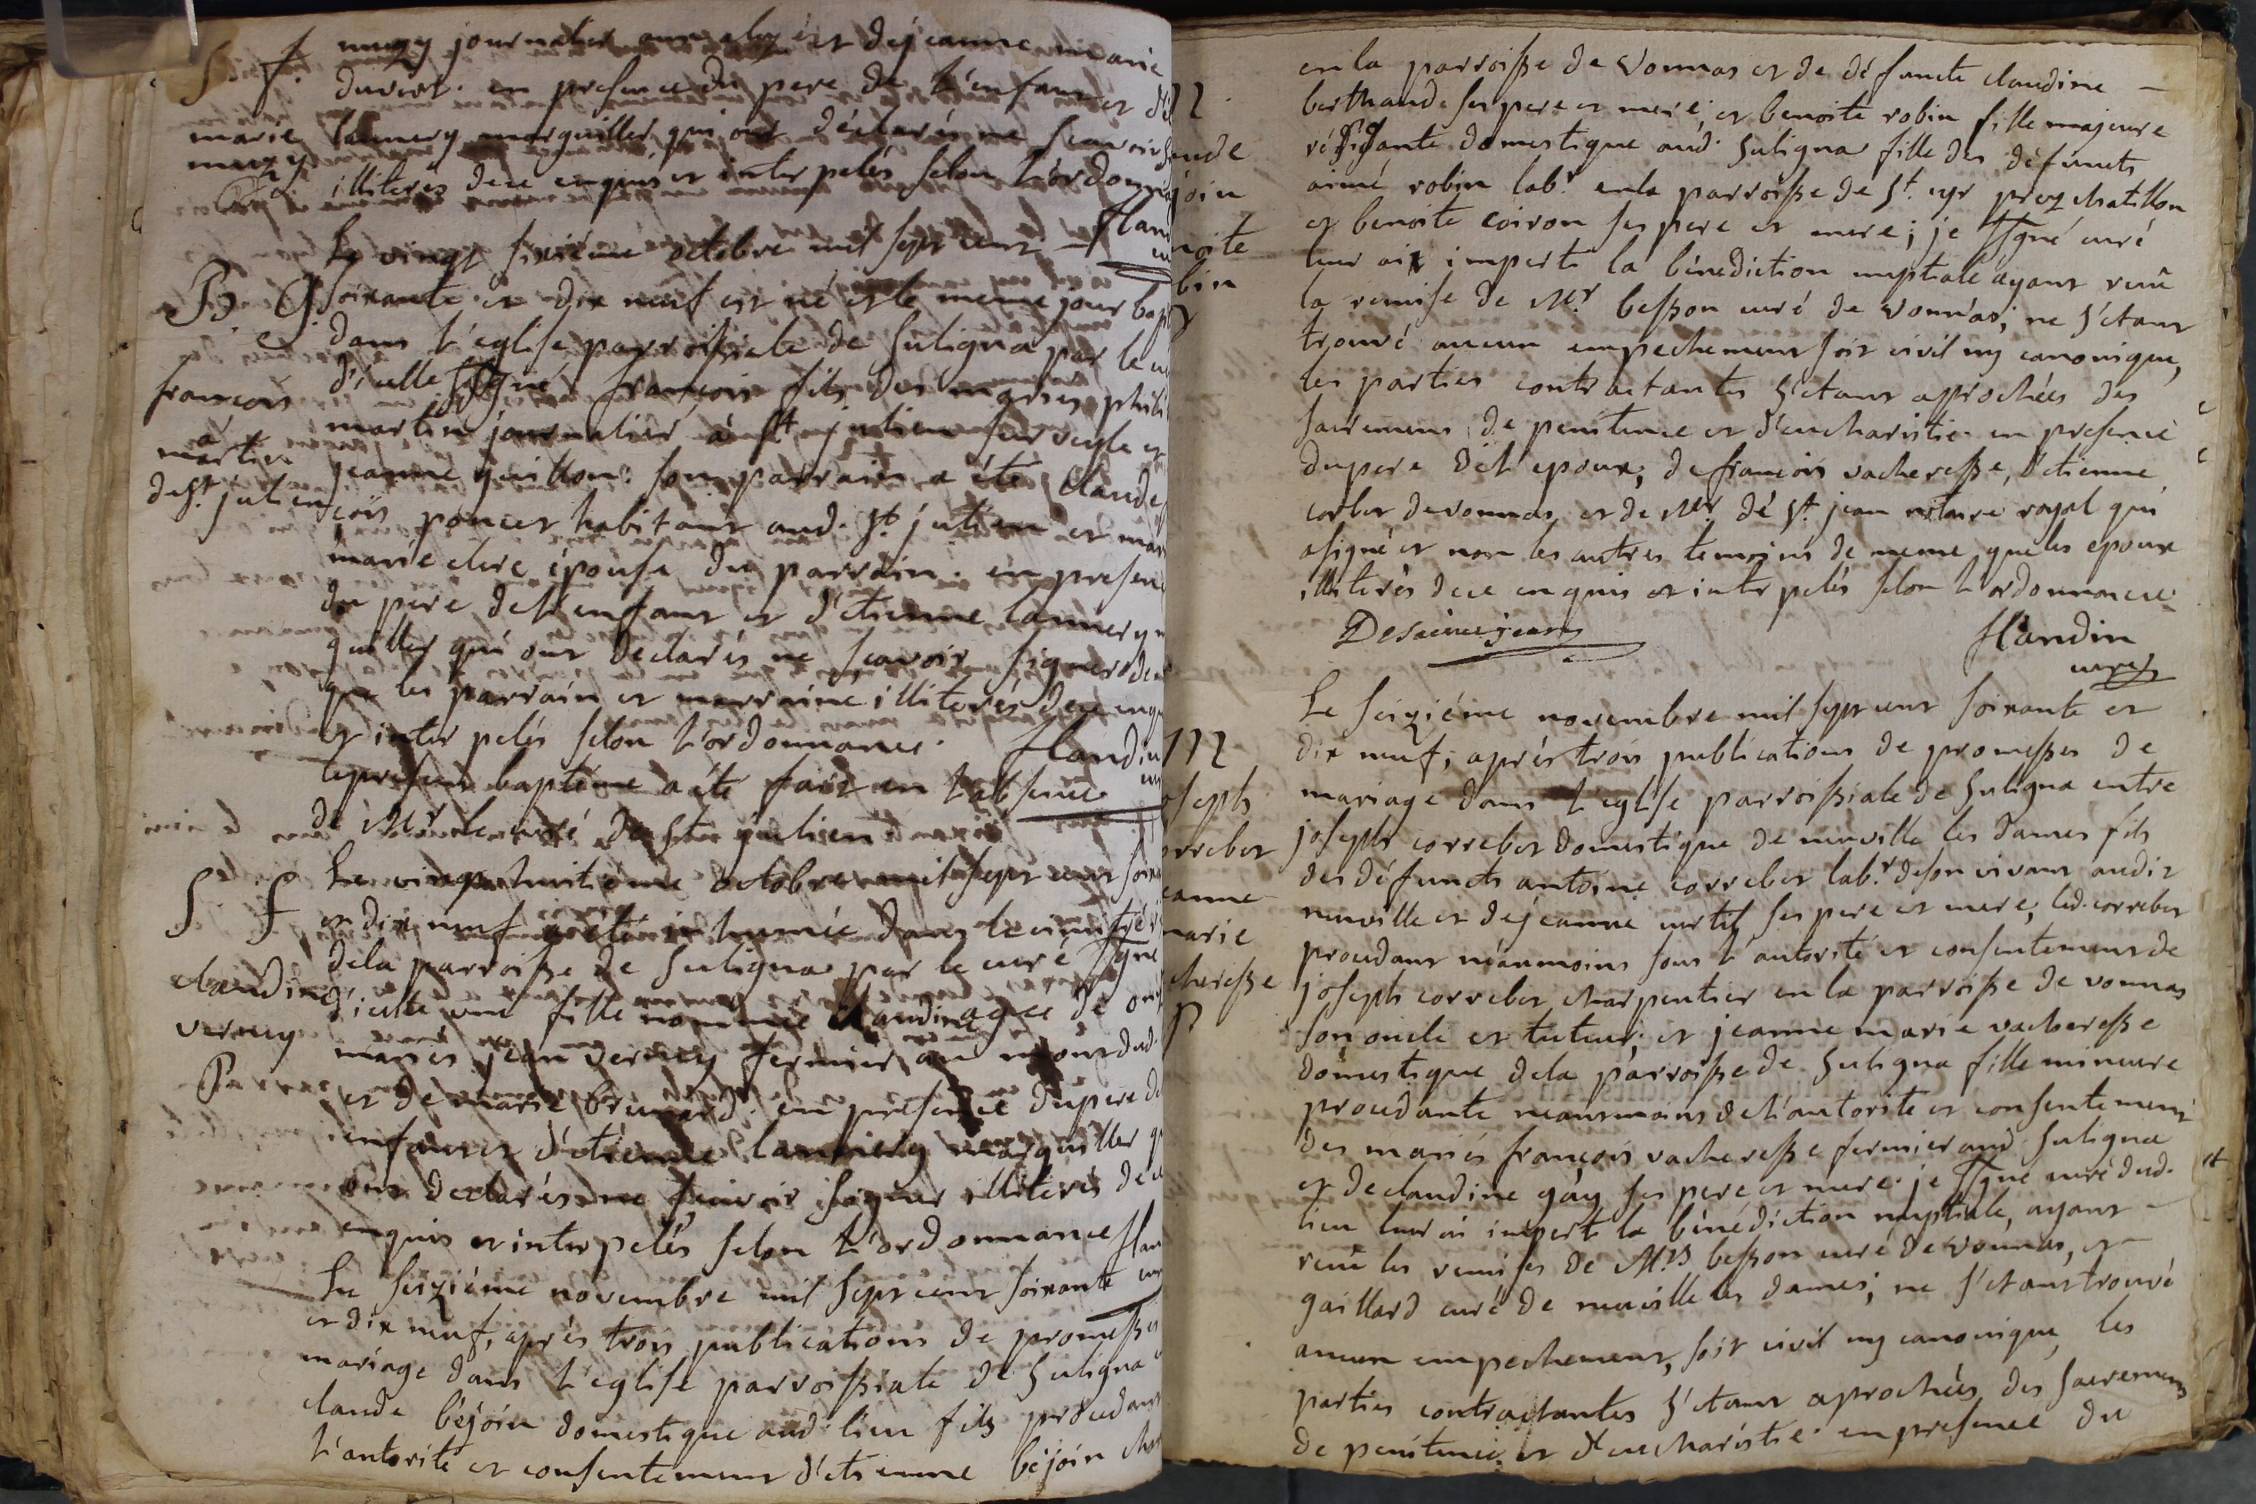 S. f. muzy journalier aux eloy et de jeanne marie
duvert. en presence du pere de l'enfant et d'é
marie lannery marguiller qui ont déclarés ne scavoir
muzy illiterés de ce enquis et interpelés selon l'ordonna
Le vingt sixiéme octobre mil sept cent
flan
B G soixante et dix neuf est né et le meme jour bap
dans l'eglise parroissiale de Suligna par le cu
d'icelle ssgné françois fils des mariés phili
françois martin journalier à St julien sur veyle et
martin jeanne guillon: son parrain a été claude
de St. julien çois poncet habitant aud. St. julien et mar
marie clere épouse du parrain. en presence
du pere de l'enfant et d'etienne lannery
guiller qui ont declarés ne scavoir signer de
que les parrain et marraine illiterés de ce enqu
et interpelés selon l'ordonnance. flandin
le present baptéme a été fait en l'absence
de Mr. le curé de St. julien
S f Le vingt huitiéme octobre mil sept cent soix
et dix neuf a été inhumée dans le cimitiér
de la parroisse de Suligna par le curé ssgné
claudine d'icelle une fille nommée claudine agée de
verney mariés jean verney fermier au dud.
P et de marie brunard. en presence du pere de
enfant et d'étienne lannery marguiller q
ont declarés ne scavoir signer illiterés de ce
enquis et interpelés selon l'ordonnance flan
Le seiziéme novembre mil sept cent soixante
et dix neuf, après trois publications de promesses
mariage dans l'eglise parroissiale de Suligna
claude béjoin domestique aud. lieu fils procedant
l'autorité et consentement d'etienne béjoin
en la parroisse de vonnas et de défuncte claudine
berthaud ses pere et mere; et benoite robin fille majeure
résidante domestique aud. Suligna fille des défuncts
aimé robin labr. en la parroisse de St. cyr prez chatillon
et benoite coiron ses pere et mere; je ssgné curé
leur ai imparti la bénediction nuptiale ayant reçu
la remise de Mr. besson curé de vonnas; ne s'étant
trouvé aucun empechement soit civil ny canonique,
les parties contractantes s'étant aprochées des
sacremens de penitence et d'eucharistie. en presence
du pere de l'epoux, de françois vacheresse, d'etienne
corbet de vonnas et de Mr. de St. jean notaire royal qui
a signé et non les autres temoins de meme que les epoux
illiterés de ce enquis et interpelés selon l'ordonnance.
Desaintjean flandin
curé
Le seiziéme novembre mil sept cent soixante et
dix neuf; aprés trois publications de promesses de
mariage dans l'eglise parroissiale de Suligna entre
joseph correbet domestique de neuville les dames fils
des défuncts antoine correbet labr. de son vivant audit
neuville et de jeanne curtil ses pere et mere; led. correbet
procedant néanmoins sous l'autorité et consentement de
joseph correbet charpentier en la parroisse de vonnas
son oncle et tuteur; et jeanne marie vacheresse
domestique de la parroisse de Suligna fille mineure
procedante neanmoins de l'autorité et consentement
des mariés françois vacheresse fermier aud. Suligna
et de claudine gay ses pere et mere. je ssgné curé dud.
lieu leur ai imparti la bénédiction nuptiale, ayant
reçu les remises de Mrs besson curé de vonnas, et
gaillard curé de neuville les dames; ne s'étant trouvé
aucun empechement, soit civil ny canonique, les
parties contractantes s'étant aprochées des sacremens
de penitence et d'eucharistie. en presence du